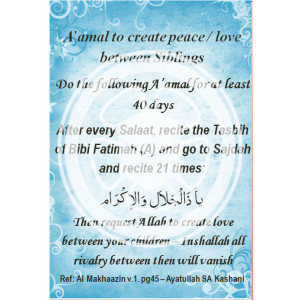 A'amal to create peace/ love
between Siblings
Do the following A'amal for at least
40 days
After every Salaat, recite the Tasbih
of Bibi Fatimah (A) and go to Sajdah
and recite 21 times:
يا ذَالْجَلَالِ وَالْإِكْرَامِ
Then request Allah to create love
between your children – Inshallah all
rivalry between then will vanish
Ref: Al Makhaazin v.1. pg45 – Ayatullah SA Kashani